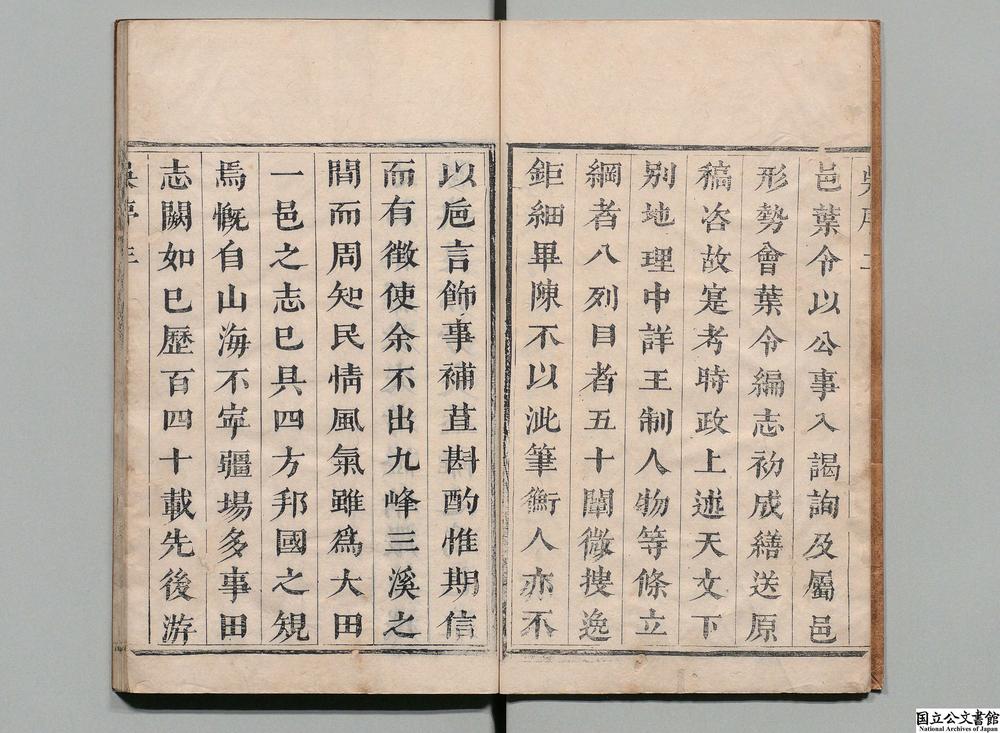 邑葉令以公事入謁詢及屬邑
形勢會葉令編志初成繕送原
稿咨故寔考時政上述天文下
别地理中詳王制人物等條立
綱者八列目者五十闡微搜逸
鉅細畢陳不以泚筆衡人亦不
以巵言飾事補苴斟酌惟期信
而有徵使余不出九峰三溪之
間而周知民情風氣雖爲大田
一邑之志已具四方邦國之規
焉慨自山海不寧疆場多事田
志闕如已歷百四十載先後游
国立公文書館
National Archives of Japan